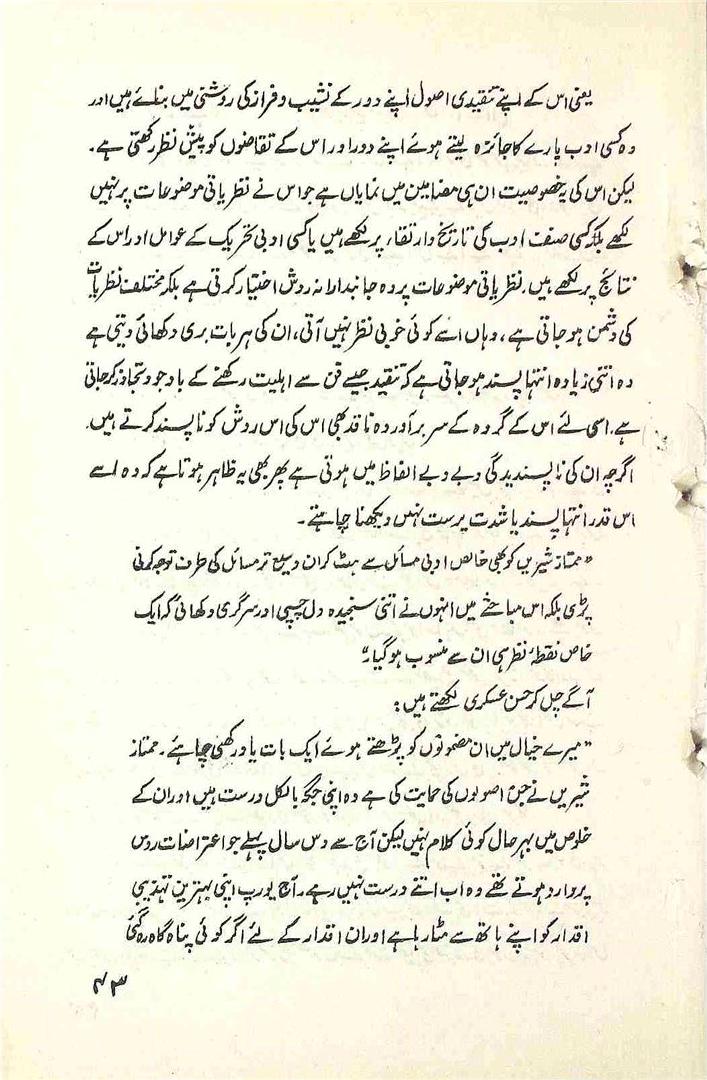 یعنی اس کے اپنے تنقیدی اصول اپنے دور کے نشیب و فراز کی روشنی میں بنائے ہیں اور
وہ کسی ادب پارے کا جائزہ لیتے ہوئے اپنے دور اور اس کے تقاضوں کو پیش نظر رکھتی ہے۔
لیکن اس کی یہ خصوصیت ان ہی مضامین میں نمایاں ہے جو اس نے نظریاتی موضوعات پر نہیں
لکھے بلکہ کسی صنف ادب کی تاریخ وار تقاء پر لکھے ہیں یا کسی ادبی تحریک کے عوامل اور اس کے
نتائج پر لکھے ہیں۔ نظریاتی موضوعات پر وہ جانبدارانہ روش اختیار کرتی ہے بلکہ مختلف نظریات
کی دشمن ہو جاتی ہے، وہاں اسے کوئی خوبی نظر نہیں آتی، ان کی ہر بات بری دکھائی دیتی ہے
وہ اتنی زیادہ انتہا پسند ہو جاتی ہے کہ تنقید جیسے فن سے اہلیت رکھنے کے باوجود تجاوز کر جاتی
ہے۔ اسی لئے اس کے گروہ کے سربرآوردہ ناقد بھی اس کی اس روش کو ناپسند کرتے ہیں۔
اگرچہ ان کی ناپسندیدگی دبے دبے الفاظ میں ہوتی ہے پھر بھی یہ ظاہر ہوتا ہے کہ وہ اسے
اس قدر انتہا پسند یا شدت پرست نہیں دیکھنا چاہتے۔
"ممتاز شیریں کو بھی خالص ادبی مسائل سے ہٹ کر ان وسیع تر مسائل کی طرف توجہ کرنی
پڑی بلکہ اس مباحثے میں انہوں نے اتنی سنجیدہ دل چسپی اور سرگرمی دکھائی کہ ایک
خاص نقطۂ نظر ہی ان سے منسوب ہو گیا۔"
آگے چل کر حسن عسکری لکھتے ہیں:
"میرے خیال میں ان مضمونوں کو پڑھتے ہوئے ایک بات یاد رکھنی چاہئے۔ ممتاز
شیریں نے جن اصولوں کی حمایت کی ہے وہ اپنی جگہ بالکل درست ہیں اور ان کے
خلوص میں بہرحال کوئی کلام نہیں لیکن آج سے دس سال پہلے جو اعتراضات روس
پر وارد ہوتے تھے وہ اب اتنے درست نہیں رہے۔ آج یورپ اپنی بہترین تہذیبی
اقدار کو اپنے ہاتھ سے مٹا رہا ہے اور ان اقدار کے لئے اگر کوئی پناہ گاہ رہ گئی
۴۳